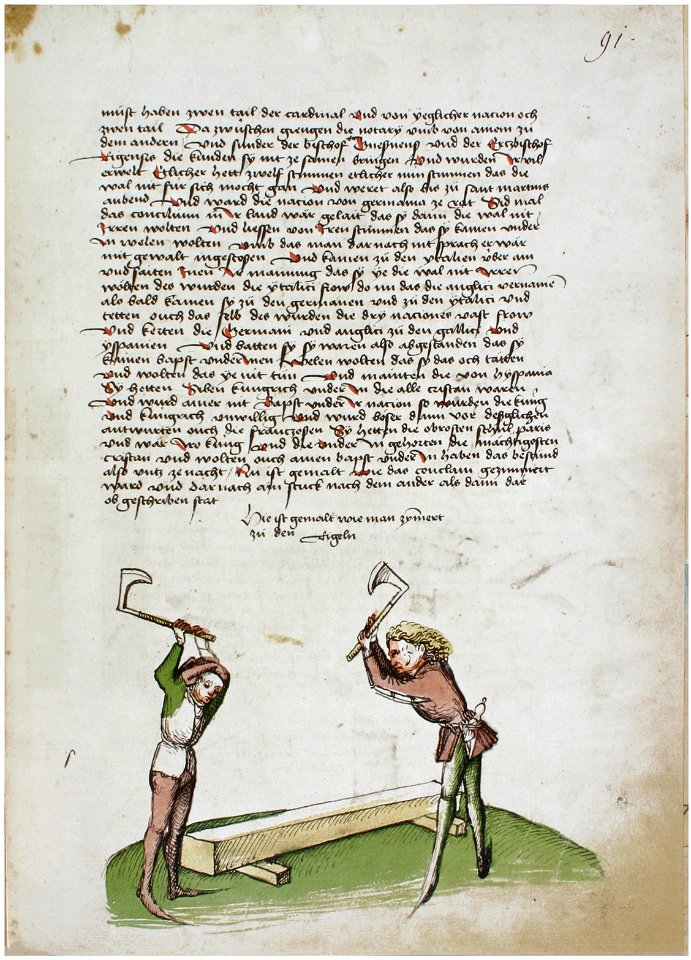 91.
müst haben zwen tail der cardinal und von yeglicher nacion och
zwen tail Da zwüschen giengen die notary umb von ainem zu
dem andern Und sunder der bischof Gnesnens und der Ertzbischof
Rigenses die kunden sy nit ze samen bringen Und wurden Ir vil
erwelt Etlicher hett zwelf stimmen etlicher nün stimmen das die
wal nit für sich mocht gan Und weret also bis zu sant martins
aubend Und ward die nacion von germania ze rat Sid mal
das concilium in Ir land wär gelait das sy dann die wal nit
Irren wolten Und liessen von Iren stimmen das sy kainen under
In welen wolten Umb das man dar nach nit sprach er wär
mit gewalt ingestossen Und kamen zu den ytalien über ain
und saiten Inen Ir mainung das sy ye die wal nit Irren
wölten des wurden die ytalici frow do nu das die anglici vernamen
als bald kamen sy zu den germanen und zu den ytalici und
tetten ouch das selb des wurden die dry naciones vast frow
Und kerten die Germani und anglici zu den gallici Und
yspanien Und batten sy sy wären also abgestanden das sy
kainen bapst under Inen Welen wolten das sy das och tätten
Und wolten das ye nit tun Und mainten die von Hyspania
Sy hetten Siben küngrich under In die alle cristan wären
Und wurd ainer nit Bapst under Ir nacion so wurden die küng
Und küngrich unwillig Und wurd böser dann vor desglichen
antwurten ouch die franczosen Sy hetten die obrosten schůl paris
Und wär Iro küng Und die under In gehorten die mächtigosten
cristan und wolten ouch ainen bapst under In haben das bestünd
also untz ze nacht Nu ist gemalt Wie das conclavi gezimmert
ward und dar nach ain stuck nach dem ander als dann dar
ob geschriben stat
Hie ist gemalt wie man zymert
zu den Rigeln